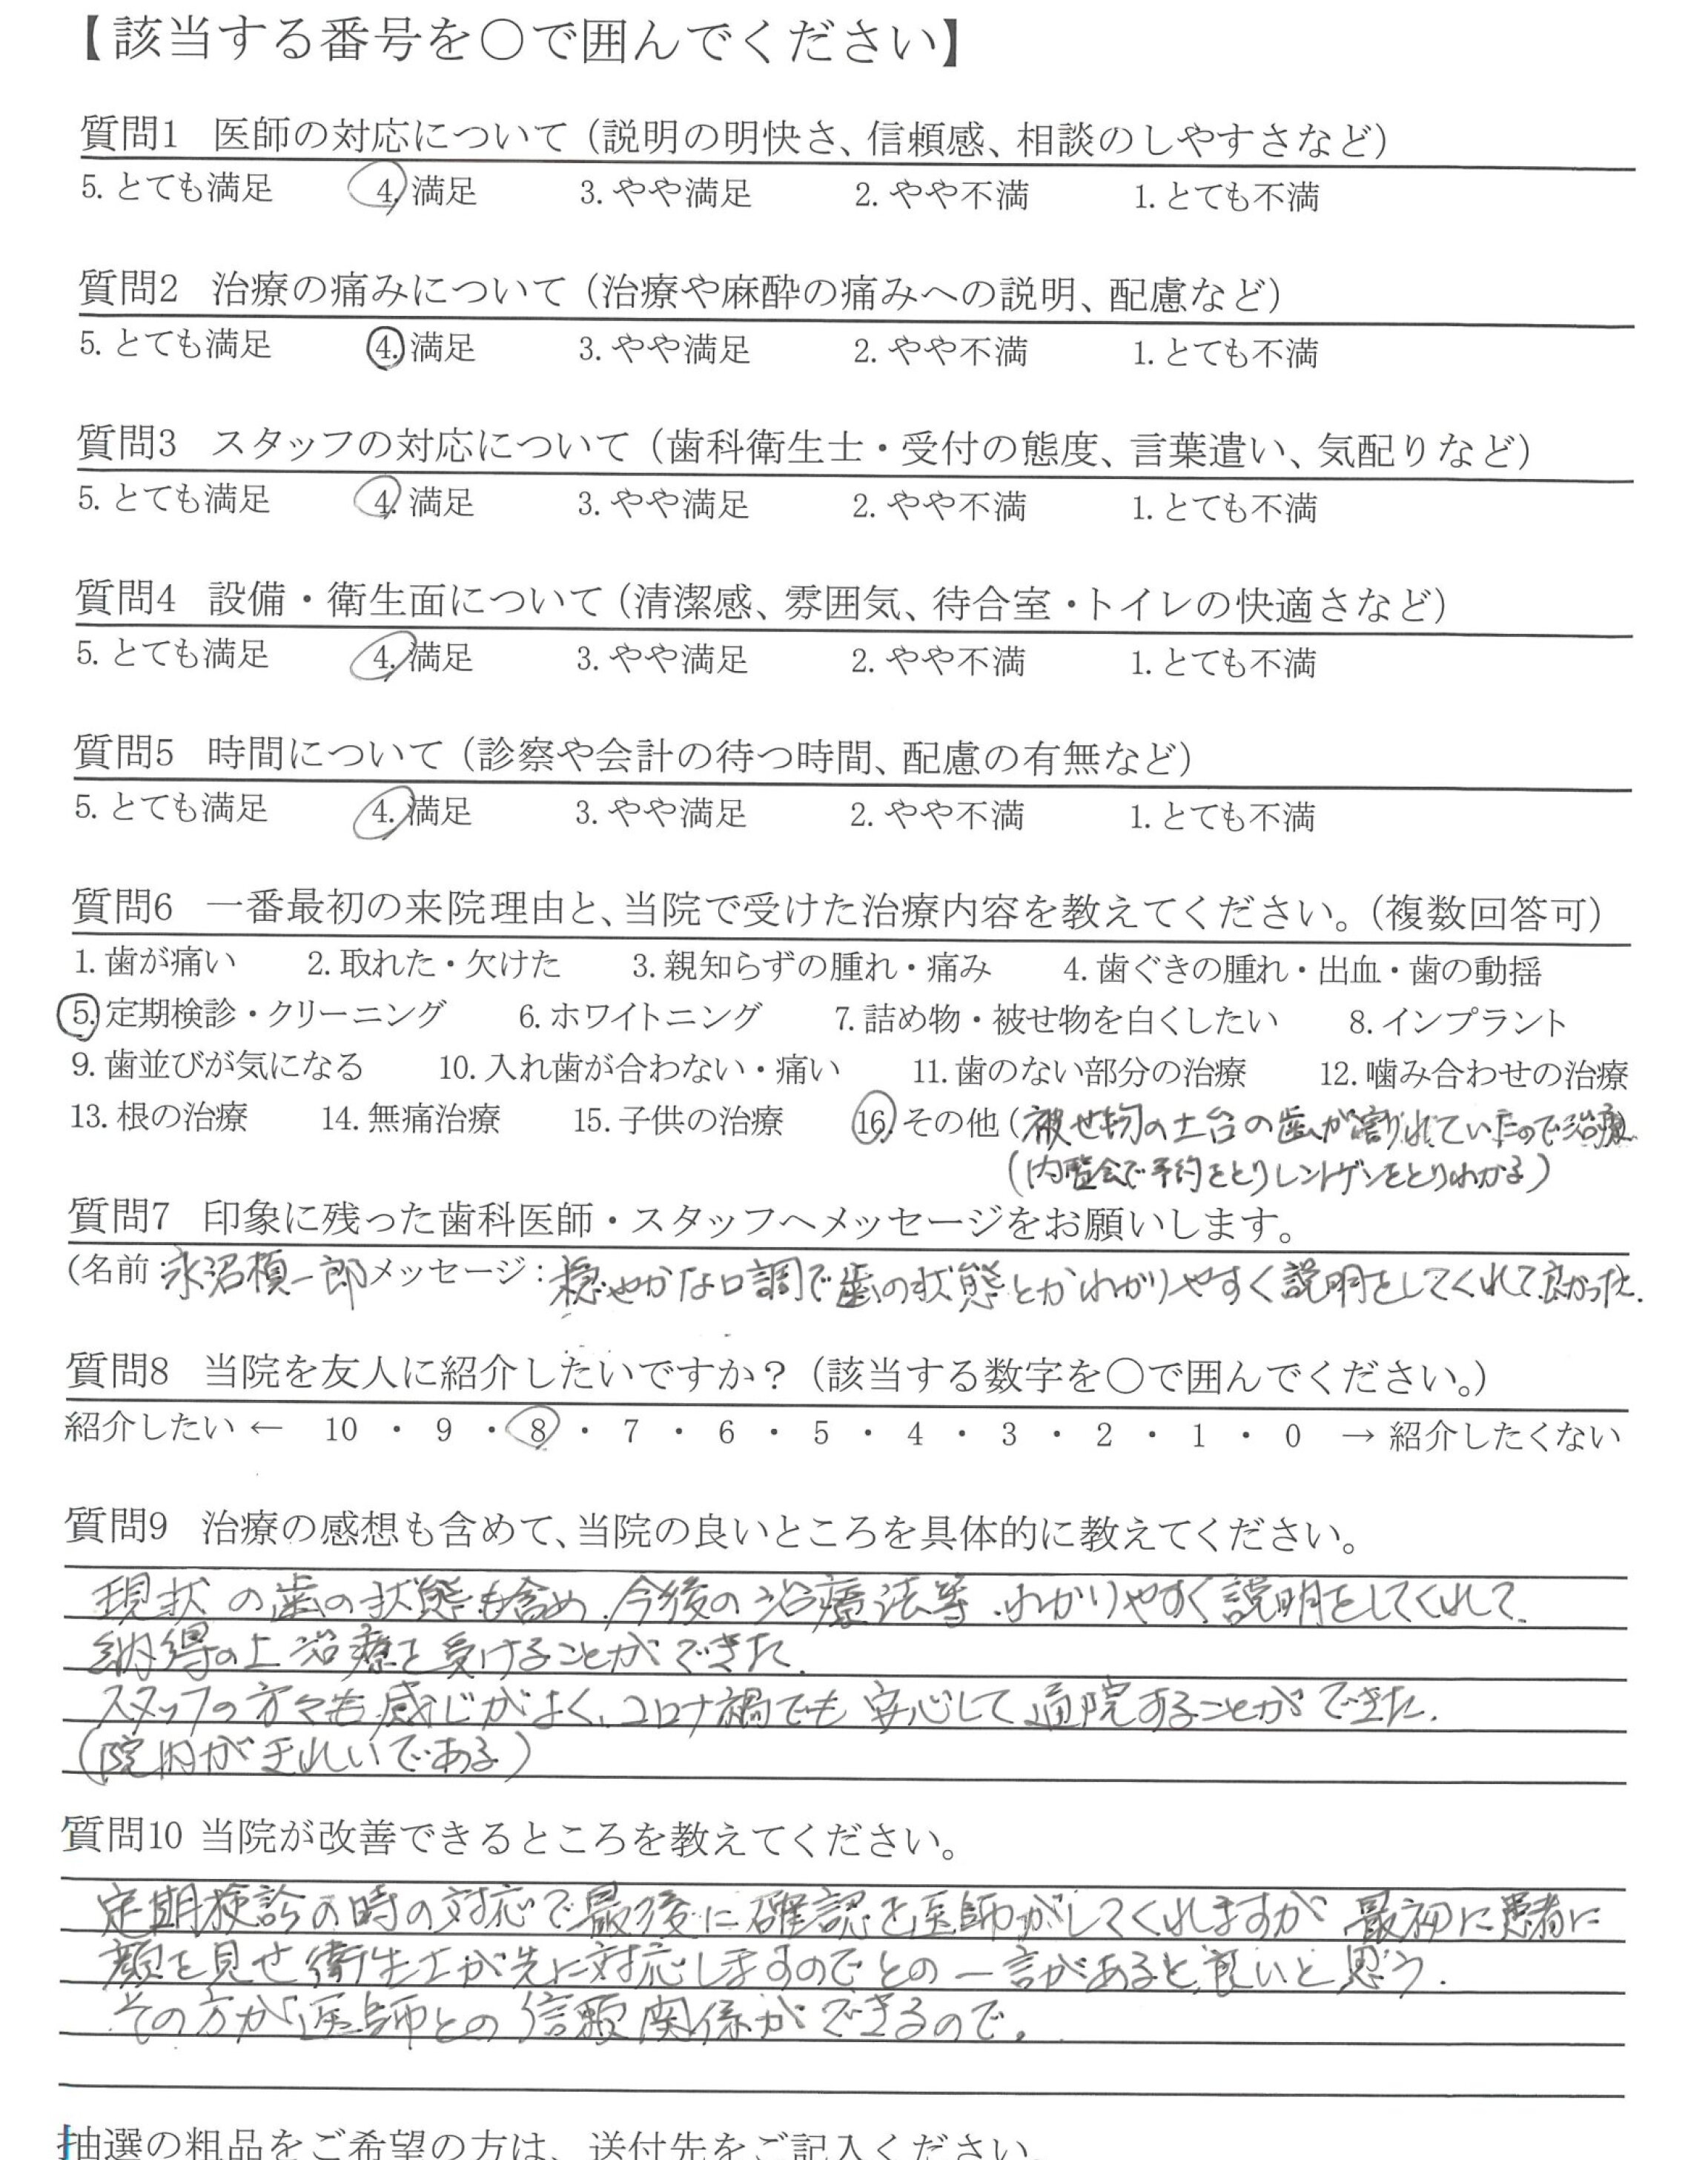 【該当する番号を〇で囲んでください】
質問1 医師の対応について（説明の明快さ、信頼感、相談のしやすさなど）
5. とても満足 4. 満足 3. やや満足 2. やや不満 1. とても不満
質問2 治療の痛みについて（治療や麻酔の痛みへの説明、配慮など）
5. とても満足 4. 満足 3. やや満足 2. やや不満 1. とても不満
質問3 スタッフの対応について（歯科衛生士・受付の態度、言葉遣い、気配りなど）
5. とても満足 4. 満足 3. やや満足 2. やや不満 1. とても不満
質問4 設備・衛生面について（清潔感、雰囲気、待合室・トイレの快適さなど）
5. とても満足 4. 満足 3. やや満足 2. やや不満 1. とても不満
質問5 時間について（診察や会計の待つ時間、配慮の有無など）
5. とても満足 4. 満足 3. やや満足 2. やや不満 1. とても不満
質問6 一番最初の来院理由と、当院で受けた治療内容を教えてください。（複数回答可）
1. 歯が痛い 2. 取れた・欠けた 3. 親知らずの腫れ・痛み 4. 歯ぐきの腫れ・出血・歯の動揺
5. 定期検診・クリーニング 6. ホワイトニング 7. 詰め物・被せ物を白くしたい 8. インプラント
9. 歯並びが気になる 10. 入れ歯が合わない・痛い 11. 歯のない部分の治療 12. 噛み合わせの治療
13. 根の治療 14. 無痛治療 15. 子供の治療 16. その他（被せ物の土台の歯が割れていたので治療
（内覧会で予約をとりレントゲンをとりわかる）
質問7 印象に残った歯科医師・スタッフへメッセージをお願いします。
（名前：永沼槙一郎 メッセージ：穏やかな口調で歯の状態とかわかりやすく説明をしてくれて良かった.
質問8 当院を友人に紹介したいですか？（該当する数字を〇で囲んでください。）
紹介したい ← 10 ・ 9 ・ 8 ・ 7 ・ 6 ・ 5 ・ 4 ・ 3 ・ 2 ・ 1 ・ 0 → 紹介したくない
質問9 治療の感想も含めて、当院の良いところを具体的に教えてください。
現状の歯の状態も含め、今後の治療法等、わかりやすく説明をしてくれて、
納得の上治療を受けることができた.
スタッフの方々も感じがよく、コロナ禍でも安心して通院することができた.
（院内がきれいである）
質問10 当院が改善できるところを教えてください。
定期検診の時の対応で最後に確認を医師がしてくれますが 最初に患者に
顔を見せ衛生士が先に対応しますのでとの一言があると良いと思う.
その方が医師との信頼関係ができるので。
抽選の粗品をご希望の方は、送付先をご記入ください。